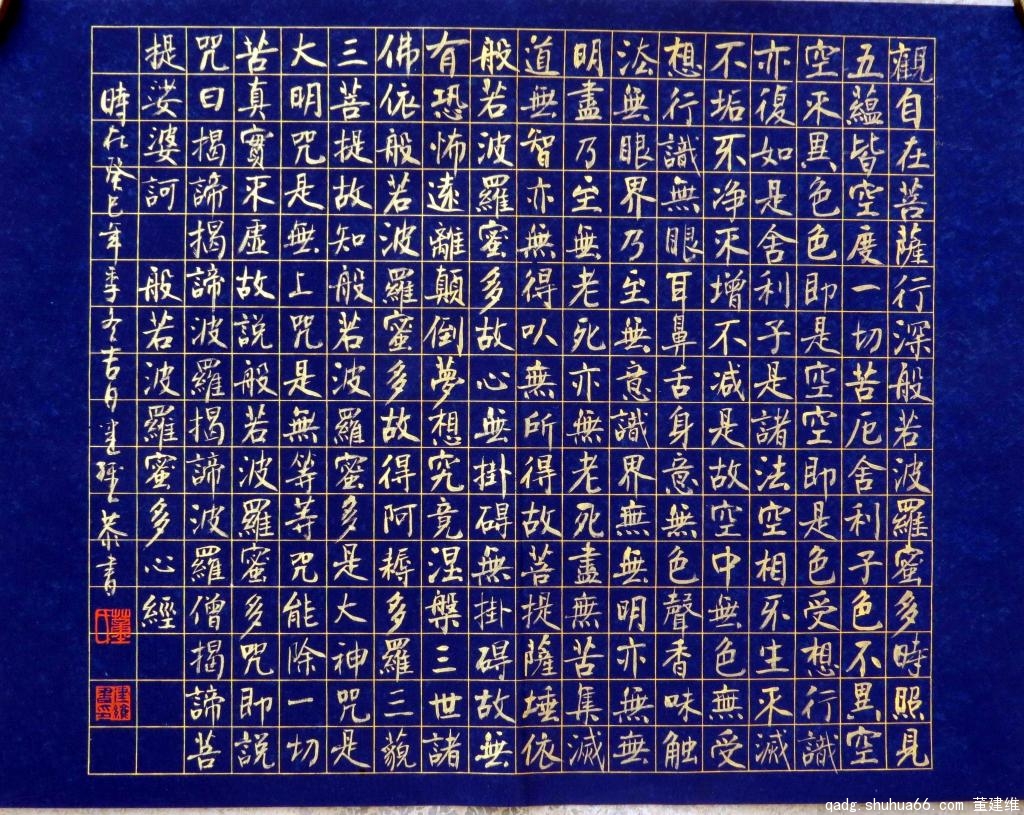 觀自在菩薩行深般若波羅蜜多時照見
五蘊皆空度一切苦厄舍利子色不異空
空不異色色即是空空即是色受想行識
亦復如是舍利子是諸法空相不生不滅
不垢不净不增不減是故空中無色無受
想行識無眼耳鼻舌身意無色聲香味触
法無眼界乃至無意識界無無明亦無無
明盡乃至無老死亦無老死盡無苦集滅
道無智亦無得以無所得故菩提薩埵依
般若波羅蜜多故心無掛碍無掛碍故無
有恐怖遠離顛倒夢想究竟涅槃三世諸
佛依般若波羅蜜多故得阿耨多羅三藐
三菩提故知般若波羅蜜多是大神咒是
大明咒是無上咒是無等等咒能除一切
苦真實不虛故說般若波羅蜜多咒即說
咒曰揭諦揭諦波羅揭諦波羅僧揭諦菩
提娑婆訶 般若波羅蜜多心經
時在癸巳年季冬吉日建維恭書
董氏
qadg.shuhua66.com 董建维